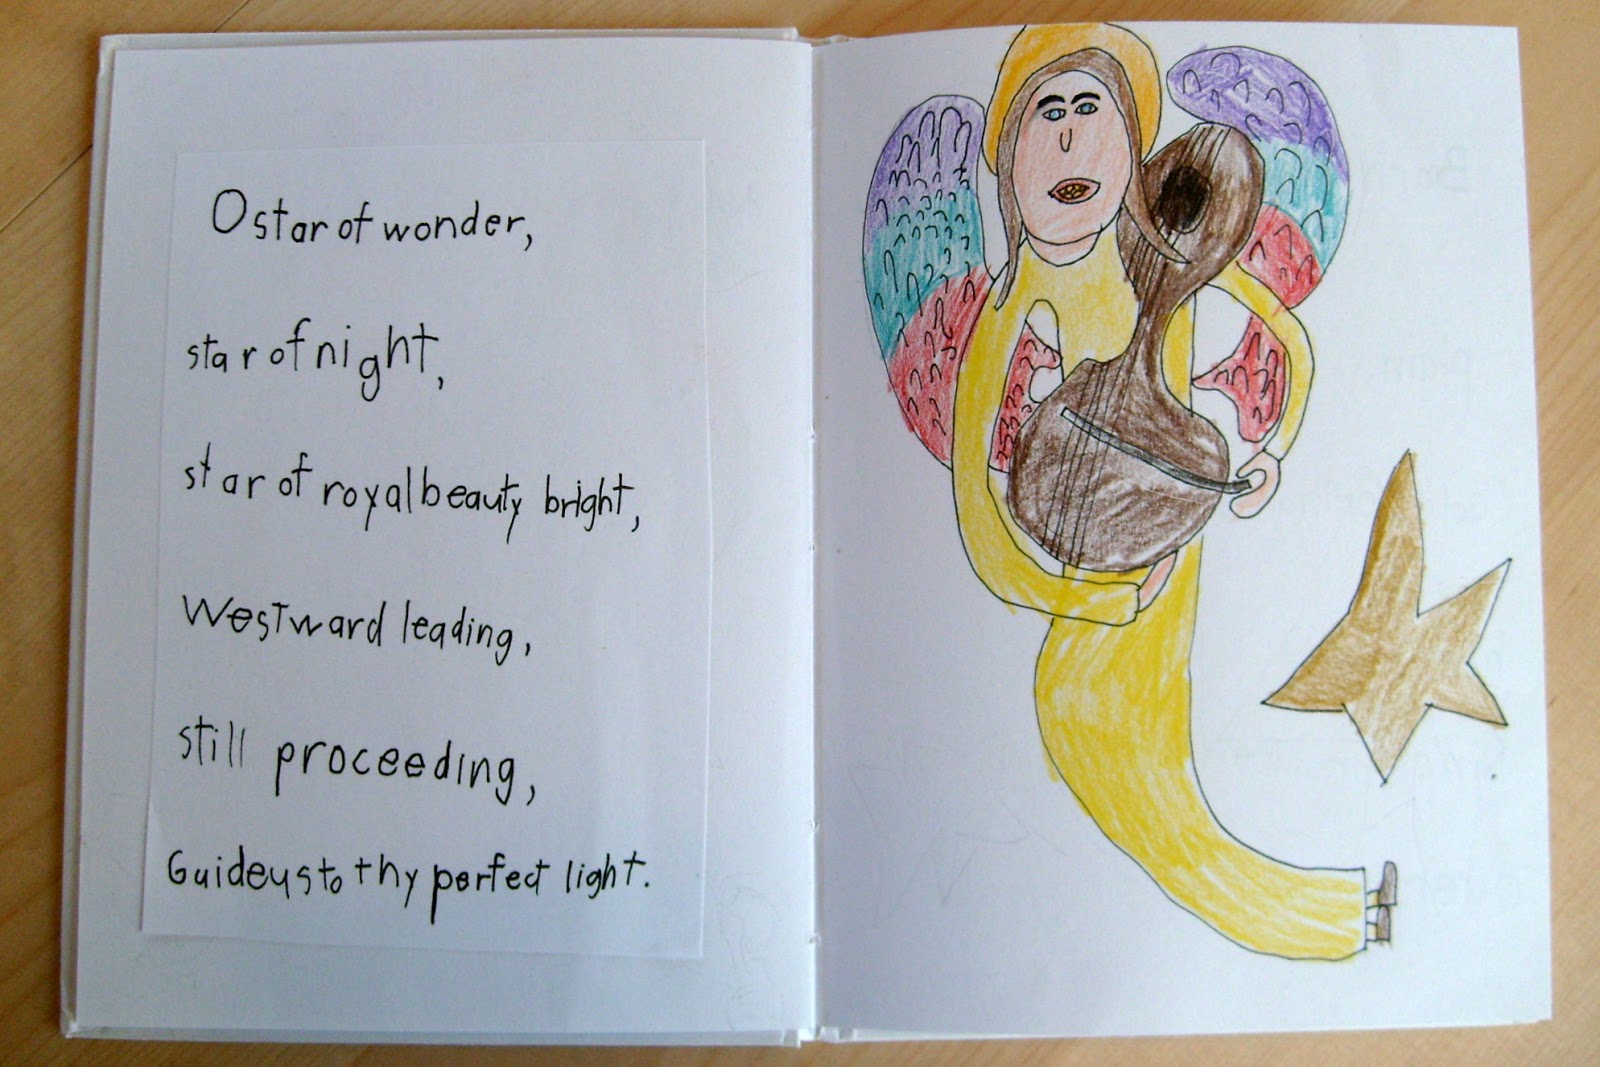 O star of wonder,
star of night,
star of royal beauty bright,
Westward leading,
still proceeding,
Guide us to thy perfect light.